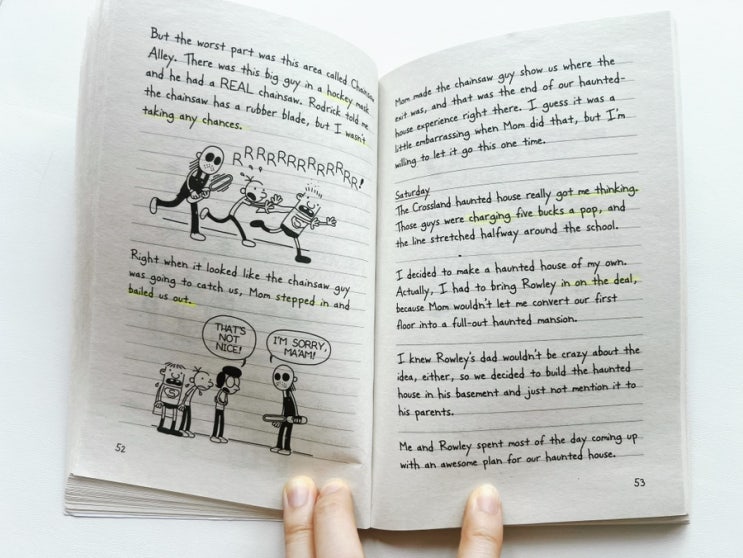 But the worst part was this area called Chainsaw
Alley. There was this big guy in a hockey mask
and he had a REAL chainsaw. Rodrick told me
the chainsaw has a rubber blade, but I wasn't
taking any chances.
RRRRRRRRRRRRR!
Right when it looked like the chainsaw guy
was going to catch us, Mom stepped in and
bailed us out.
THAT'S
NOT
NICE!
I'M SORRY,
MA'AM!
52
Mom made the chainsaw guy show us where the
exit was, and that was the end of our haunted-
house experience right there. I guess it was a
little embarrassing when Mom did that, but I'm
willing to let it go this one time.
Saturday
The Crossland haunted house really got me thinking.
Those guys were charging five bucks a pop, and
the line stretched halfway around the school.
I decided to make a haunted house of my own.
Actually, I had to bring Rowley in on the deal,
because Mom wouldn't let me convert our first
floor into a full-out haunted mansion.
I knew Rowley's dad wouldn't be crazy about the
idea, either, so we decided to build the haunted
house in his basement and just not mention it to
his parents.
Me and Rowley spent most of the day coming up
with an awesome plan for our haunted house.
53